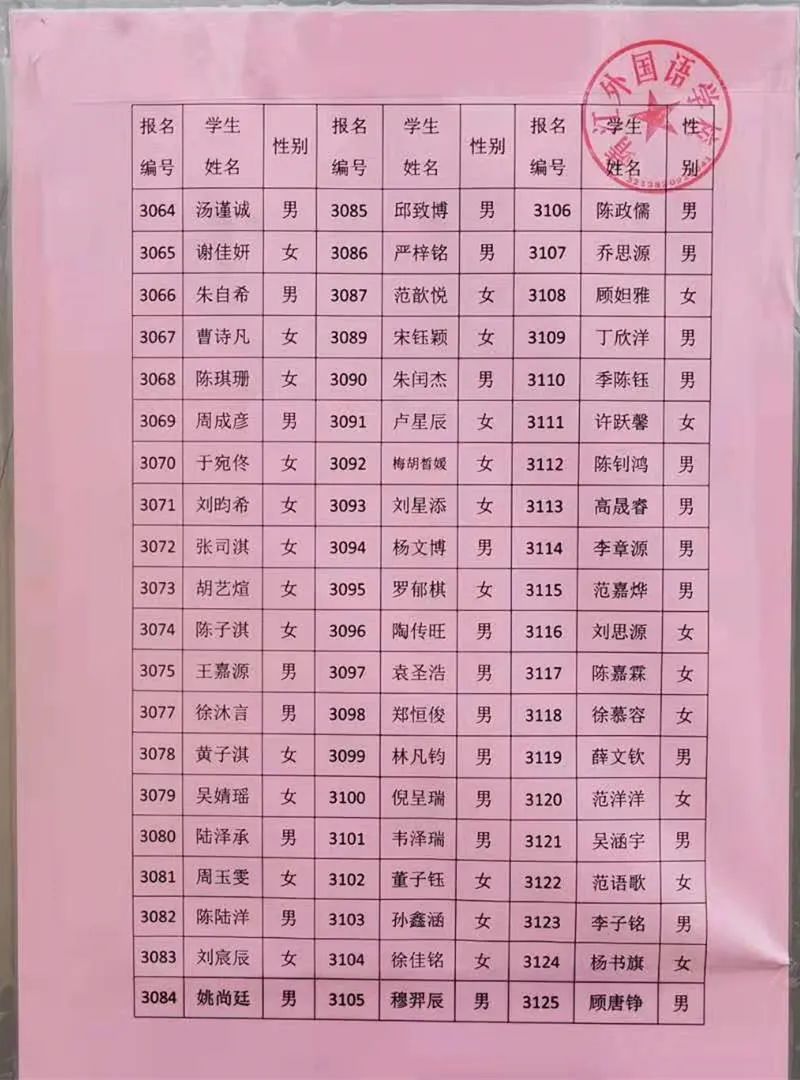 青江外国语学校
报名编号 学生姓名 性别 报名编号 学生姓名 性别 报名编号 学生姓名 性别
3064 汤谨诚 男 3085 邱致博 男 3106 陈政儒 男
3065 谢佳妍 女 3086 严梓铭 男 3107 乔思源 男
3066 朱自希 男 3087 范歆悦 女 3108 顾妲雅 女
3067 曹诗凡 女 3089 宋钰颖 女 3109 丁欣洋 男
3068 陈琪珊 女 3090 朱闰杰 男 3110 季陈钰 男
3069 周成彦 男 3091 卢星辰 女 3111 许跃馨 女
3070 于宛佟 女 3092 梅胡皙媛 女 3112 陈钊鸿 男
3071 刘昀希 女 3093 刘星添 女 3113 高晟睿 男
3072 张司淇 女 3094 杨文博 男 3114 李章源 男
3073 胡艺煊 女 3095 罗郁棋 女 3115 范嘉烨 男
3074 陈子淇 女 3096 陶传旺 男 3116 刘思源 女
3075 王嘉源 男 3097 袁圣浩 男 3117 陈嘉霖 女
3077 徐沐言 男 3098 郑恒俊 男 3118 徐慕容 女
3078 黄子淇 女 3099 林凡钧 男 3119 薛文钦 男
3079 吴婧瑶 女 3100 倪呈瑞 男 3120 范洋洋 女
3080 陆泽承 男 3101 韦泽瑞 男 3121 吴涵宇 男
3081 周玉雯 女 3102 董子钰 女 3122 范语歌 女
3082 陈陆洋 男 3103 孙鑫涵 女 3123 李子铭 男
3083 刘宸辰 女 3104 徐佳铭 女 3124 杨书旗 女
3084 姚尚廷 男 3105 穆羿辰 男 3125 顾唐铮 男